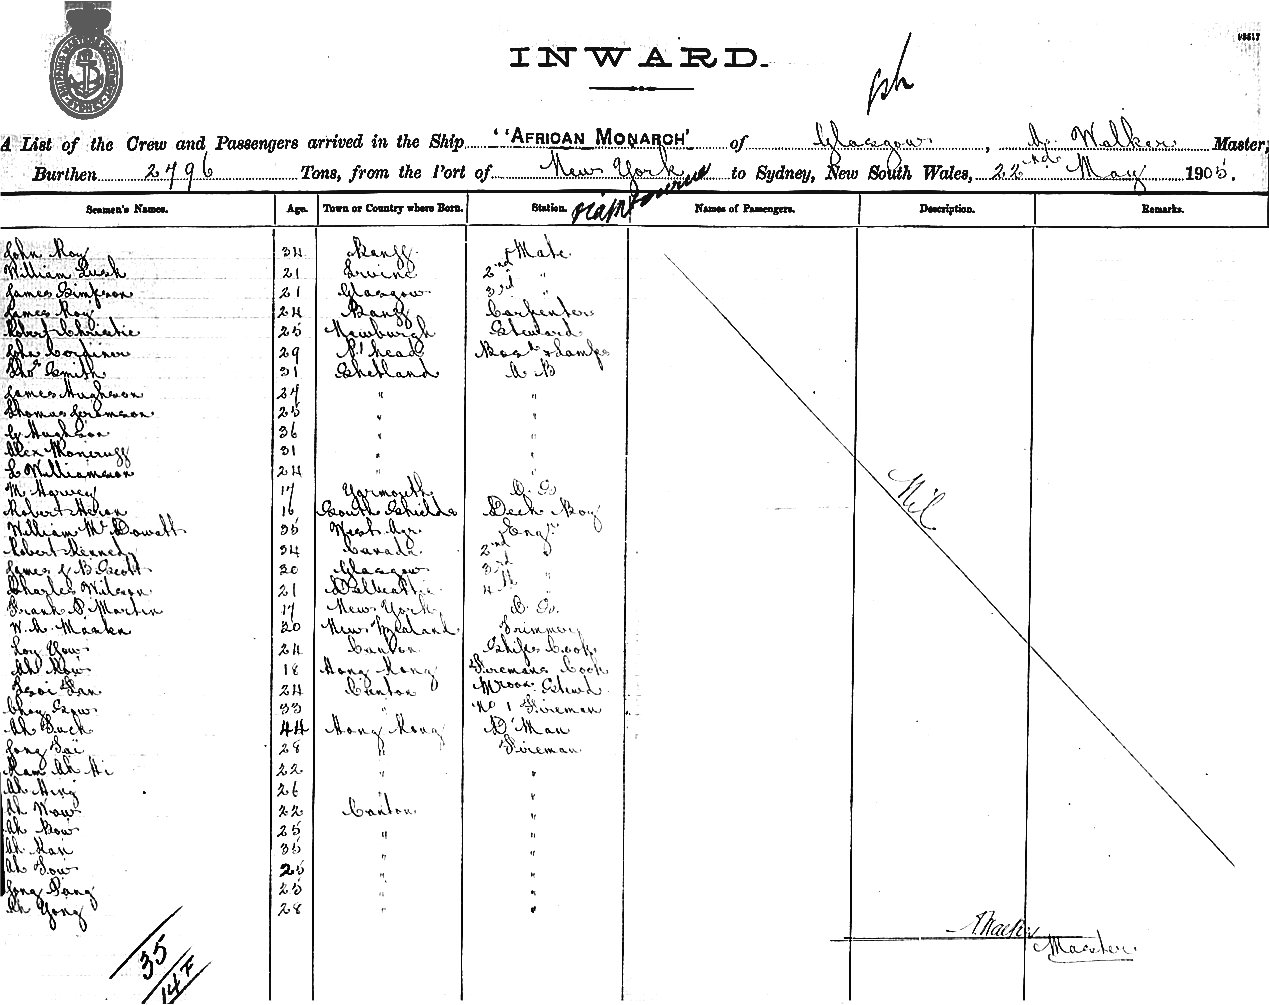 INWARD.
A List of the Crew and Passengers arrived in the Ship "AFRICAN MONARCH" of Glasgow, Walker Master,
Burthen 2796 Tons, from the Port of New York to Sydney, New South Wales, 22nd May 1905.
Seamen's Names. Age. Town or Country where Born. Station. Names of Passengers. Description. Remarks.
John Roy 34 Banff Mate
William Lusk 21 Irvine 2nd "
James Simpson 21 Glasgow 3rd "
James Roy 24 Banff Carpenter
Robert Christie 25 Newburgh Steward
John 29 P'head Bosn & Lamps
Thos Smith 31 Shetland A B
James Hughson 27 " "
Thomas 25 " "
G. Hughson 36 " "
Alex Moncrieff 31 " "
L Williamson 24 " "
M Harvey 17 Yarmouth O. S.
Robert Heron 16 South Shields Deck Boy
William McDowall 35 Engr
Robert Kennedy 34 Canada 2nd "
James J. B. Scott 30 Glasgow 3rd "
Charles Wilson 21 Dalbeattie 4th "
Frank P. Martin 17 New York O. S.
W. A. 20 New Zealand Trimmer
Loy You 24 Canton Ships Cook
Ah Kow 18 Hong Kong Firemans Cook
24 Canton Mroom Stwd
33 " No 1 Fireman
Ah 44 Hong Kong D'Man
28 " Fireman
Kam Ah Hi 22 " "
Ah Hing 26 " "
Ah Wow 22 Canton "
Ah Bow 25 " "
Ah Kan 35 " "
Ah Sow 25 " "
25 " "
Ah Yong 28 " "
Nil
Master
35
14 F